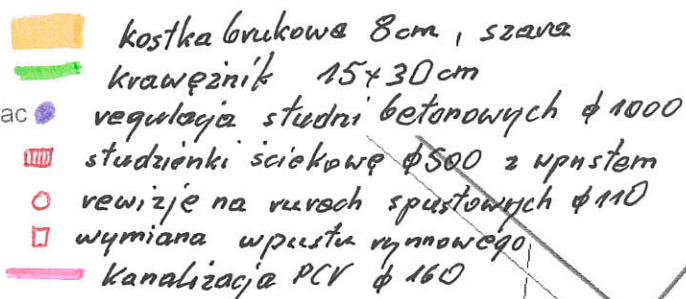 kostka brukowa 8cm, szara
krawężnik 15x30cm
ac regulacja studni betonowych ϕ1000
studzienki ściekowe ϕ500 z wpustem
rewizje na rurach spustowych ϕ110
wymiana wpustu rynnowego
kanalizacja PCV ϕ 160